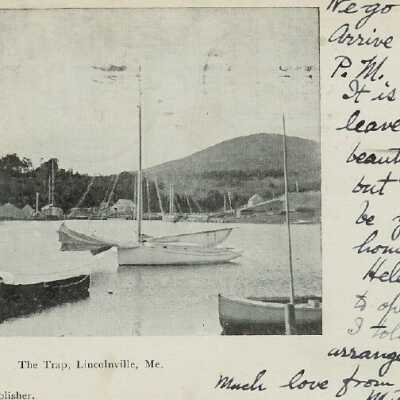 We go
Arrive
P.M.
It is
leave
beaut
but
be
hom
Hel
to
I tol
arrang
The Trap, Lincolnville, Me.
Much love from
blisher.